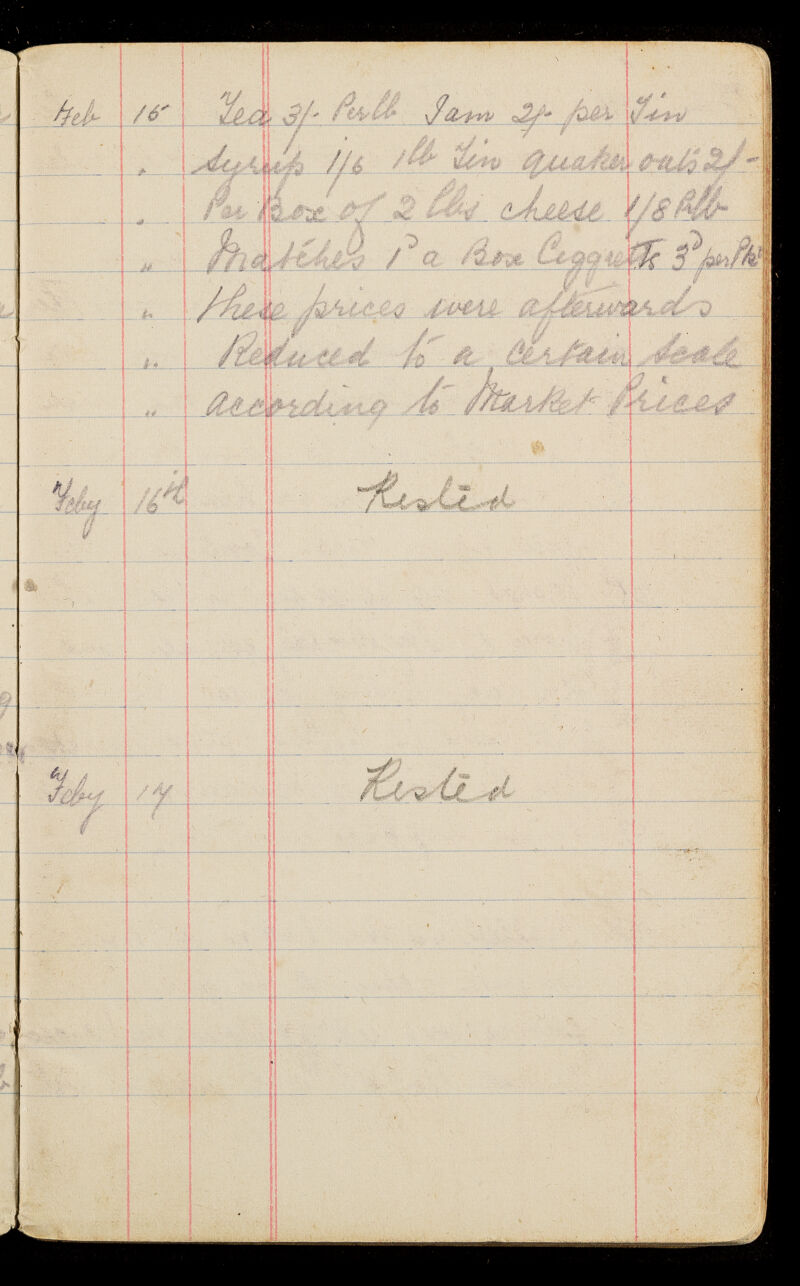 Feb 15 Tea 3/- Per lb Jam 2/- per Tin
" Syrup 1/6 1lb Tin Quaker oats 2/-
" Per Box of 2 lbs cheese 1/8 P lb
" Matches 1d a Box Ciggretts 3d per Pkt
" these prices were afterwards
" Reduced to a certain scale
" according to Market Prices
Feby 16th Rested
Feby 17 Rested